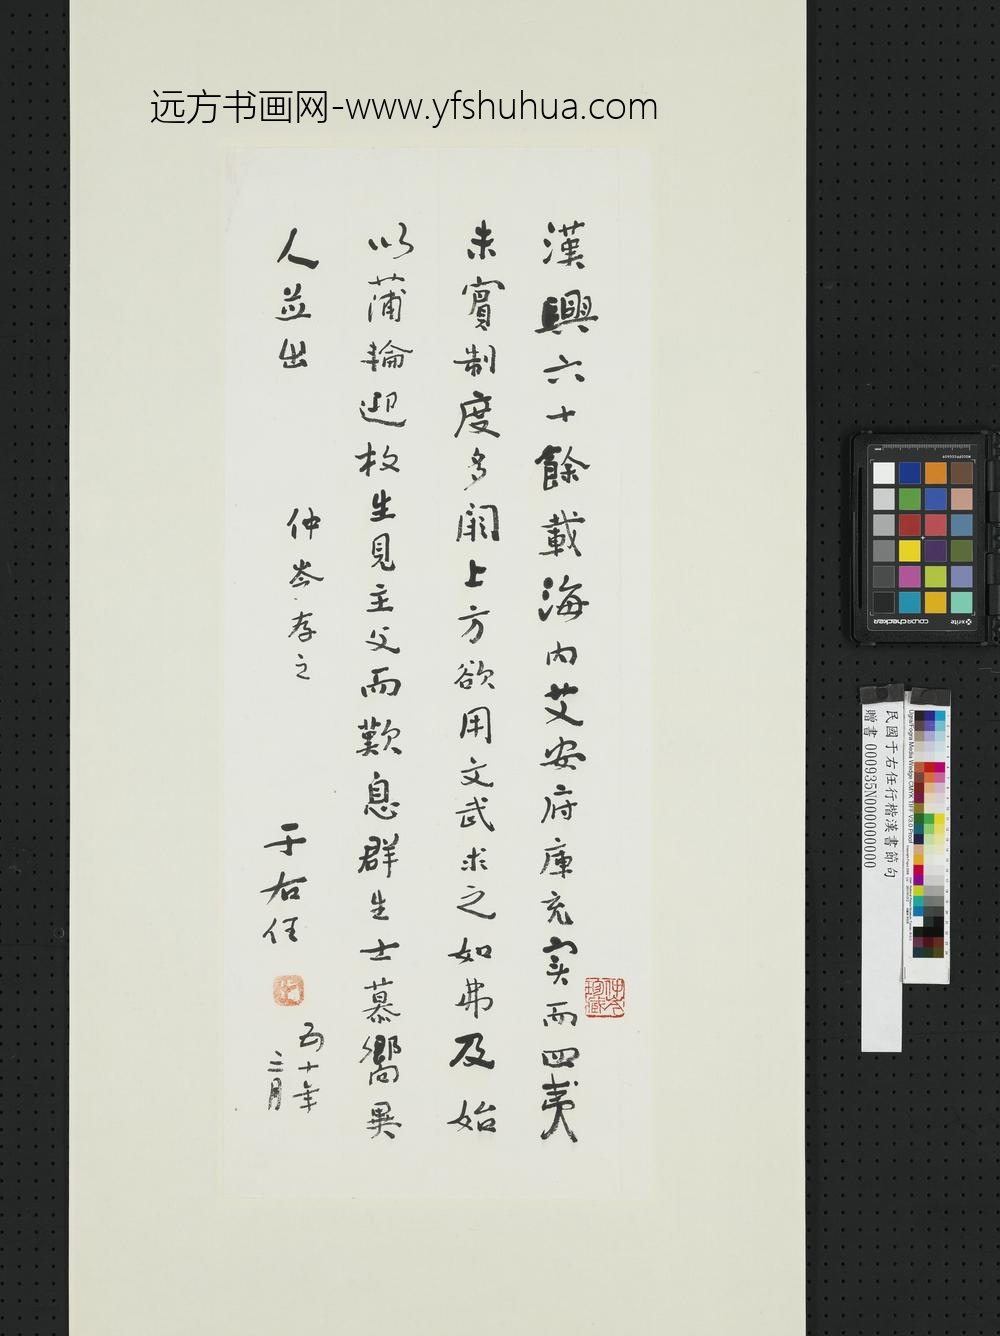 远方书画网-www.yfshuhua.com
漢興六十餘載海內艾安府庫充实而四夷
未賓制度多闕上方欲用文武求之如弗及始
以蒲輪迎枚生見主父而歎息群生士慕嚮異
人並出
仲岑存之
于右任
五十年
二月
民國于右任行楷漢書節句
贈書 000935N000000000
x-rite
colorchecker